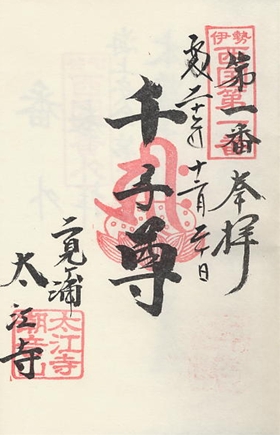 伊勢
西国第一番
第一番 奉拝
平成二十 年 十 月 日
千手尊
二見ヶ浦
太江寺
太江寺
潮音山